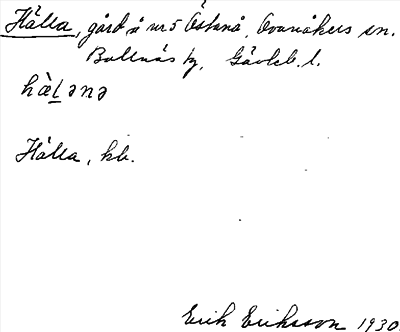 Hälla, gård å nr 5 Östanå, Ovanåkers sn.
Bollnäs tg, Gävleb. l.
hä̀ḷənə
Hälla, kb.
Erik Eriksson 1930.